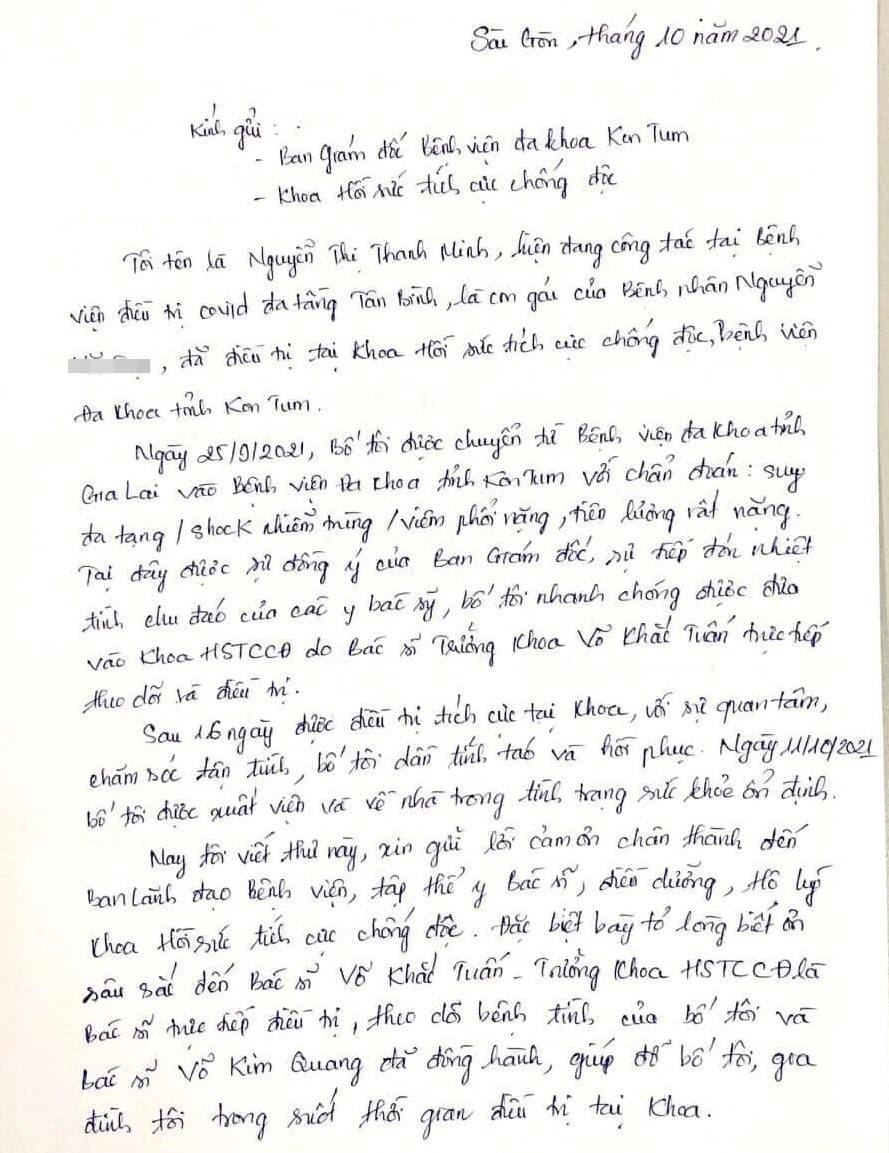 Sài Gòn, tháng 10 năm 2021.
Kính gửi:
- Ban Giám đốc Bệnh viện đa khoa Kon Tum
- Khoa Hồi sức tích cực chống độc
Tôi tên là Nguyễn Thị Thanh Minh, hiện đang công tác tại Bệnh
viện điều trị covid đa tầng Tân Bình, là con gái của Bệnh nhân Nguyễn
, đã điều trị tại Khoa Hồi sức tích cực chống độc, Bệnh viện
Đa Khoa tỉnh Kon Tum.
Ngày 25/9/2021, Bố tôi được chuyển từ Bệnh viện đa khoa tỉnh
Gia Lai vào Bệnh viện Đa khoa tỉnh Kon Tum với chẩn đoán: suy
đa tạng / shock nhiễm trùng / viêm phổi nặng, tiên lượng rất nặng.
Tại đây được sự đồng ý của Ban Giám đốc, sự tiếp đón nhiệt
tình chu đáo của các y bác sỹ, bố tôi nhanh chóng được đưa
vào Khoa HSTCCĐ do Bác sĩ Trưởng Khoa Võ Khắc Tuấn trực tiếp
theo dõi và điều trị.
Sau 16 ngày được điều trị tích cực tại Khoa, với sự quan tâm,
chăm sóc tận tình, bố tôi dần tỉnh táo và hồi phục. Ngày 11/10/2021
bố tôi được xuất viện và về nhà trong tình trạng sức khỏe ổn định.
Nay tôi viết thư này, xin gửi lời cảm ơn chân thành đến
Ban Lãnh đạo Bệnh viện, tập thể y Bác sĩ, điều dưỡng, Hộ lý
Khoa Hồi sức tích cực chống độc. Đặc biệt bày tỏ lòng biết ơn
sâu sắc đến Bác sĩ Võ Khắc Tuấn - Trưởng Khoa HSTCCĐ là
Bác sĩ trực tiếp điều trị, theo dõi bệnh tình của bố tôi và
bác sĩ Võ Kim Quang đã đồng hành, giúp đỡ bố tôi, gia
đình tôi trong suốt thời gian điều trị tại Khoa.